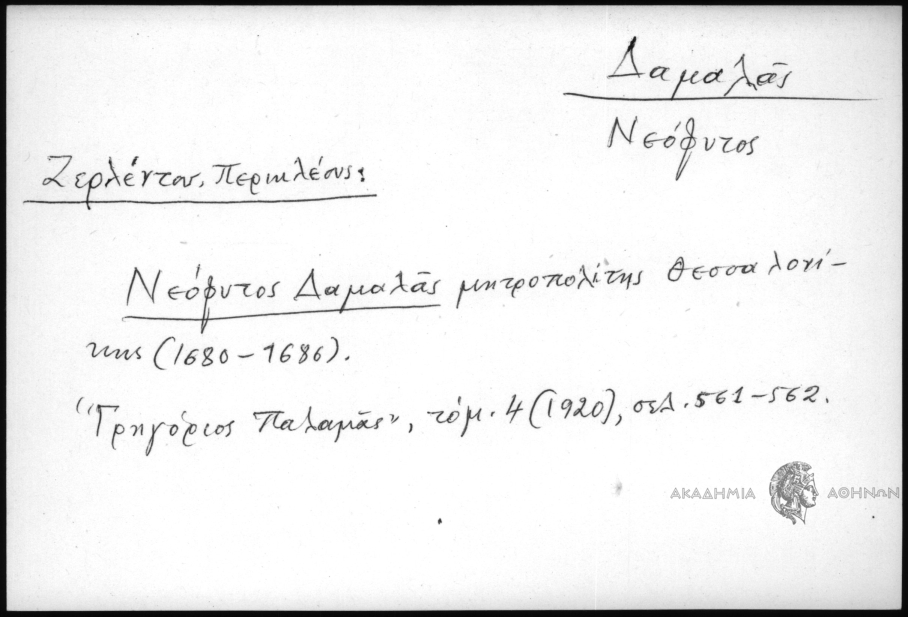 Δαμαλᾶς
Νεόφυτος
Ζερλέντου, Περικλέους:
Νεόφυτος Δαμαλᾶς μητροπολίτης Θεσσαλονί-
κης (1680-1686).
"Γρηγόριος Παλαμᾶς", τόμ. 4 (1920), σελ. 561-562.
ΑΚΑΔΗΜΙΑ ΑΘΗΝΩΝ